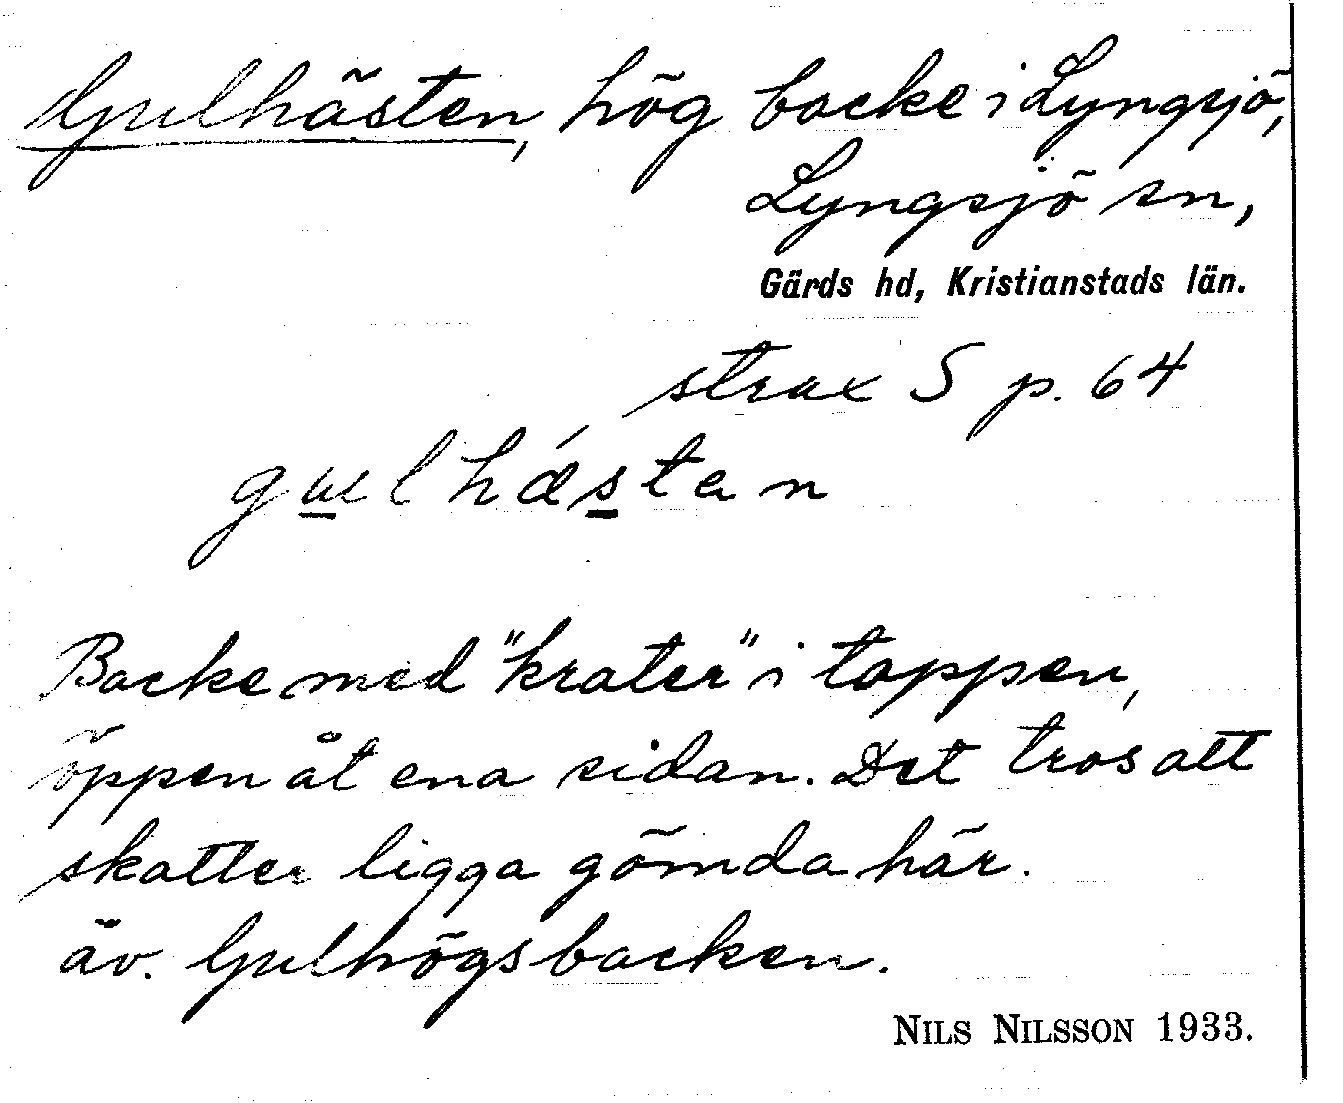 Gulhästen, hög backe i Lyngsjö,
Lyngsjö sn,
Gärds hd, Kristianstads län.
strax S p. 64
gulhǽstan
Backe med "krater" i toppen,
öppen åt ena sidan. Det tros att
skatter ligga gömda här.
äv. Gulhögsbacken.
NILS NILSSON 1933.